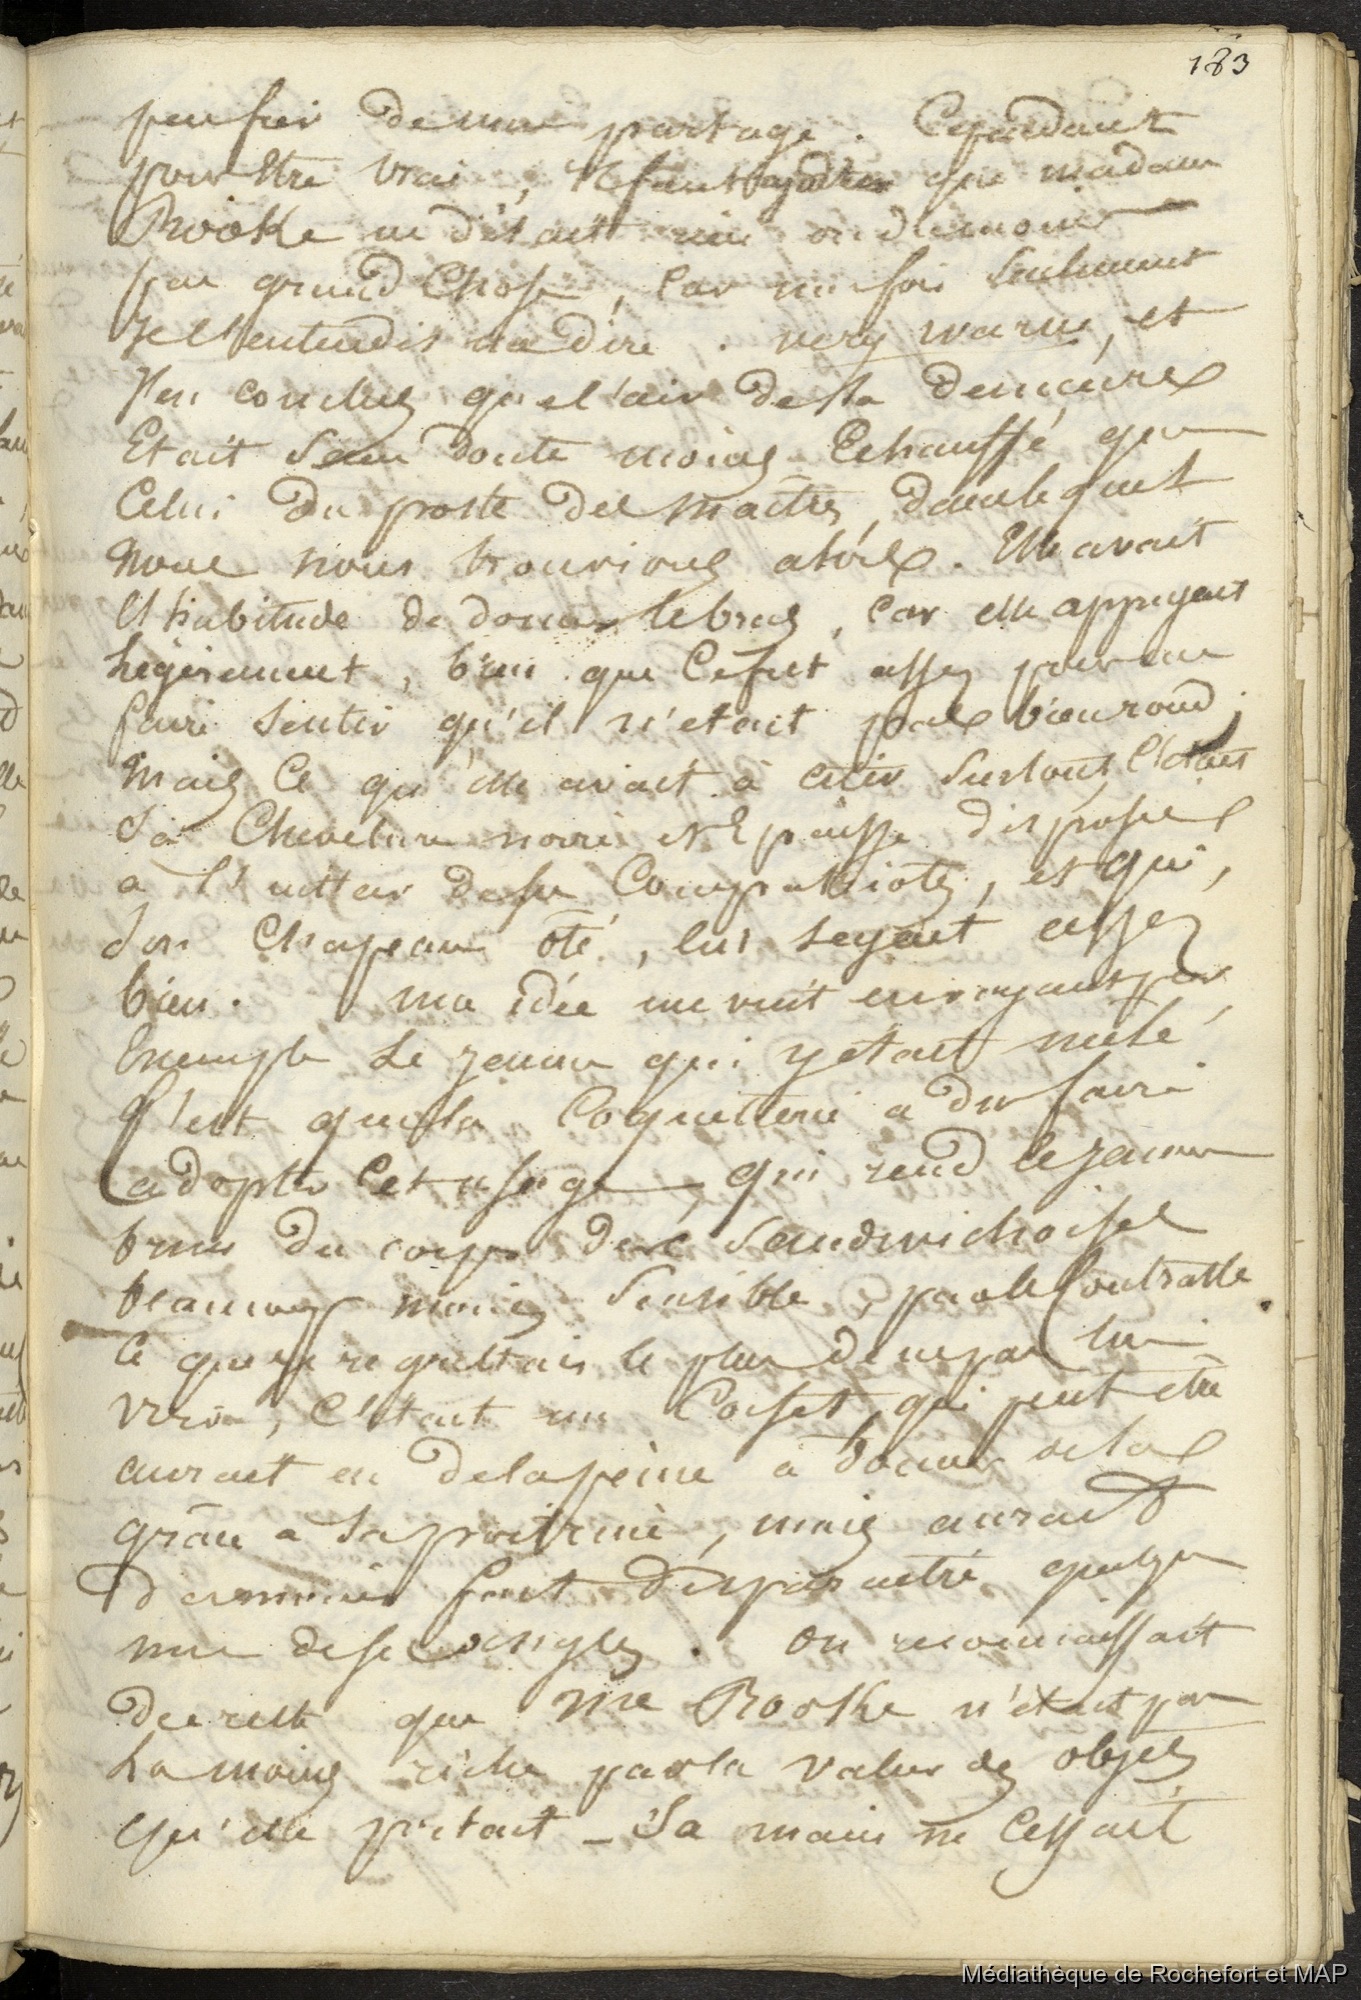 183
peu fier de mon partage. Cependant
pour être vrai, il faut ajouter que madame
Rooke ne disait rien ou du moins
pas grand chose, car une fois seulement
je l'entendis dire. very warm, et
j'en conclus que l'air de sa demeure
Etait sans doute moins Echauffé que
Celui du poste des maîtres, dans lequel
nous nous trouvions alors. Elle avait
l'habitude de donner le bras, car elle appuyait
légèrement, bien que ce fut assez pour me
faire sentir qu'il n'etait pas bien rond.
Mais ce qu'elle avait à citer surtout, c'était
Sa Chevelure noire et Epaisse disposée
a l'instar de ses Compatriotes, et qui,
Son Chapeau ôté, lui seyait assez
bien. ma idée me vint en voyant par
Exemple le jaune qui y était mêlé
C'est que la Coquetterie a du faire
adopter cet usage, qui rend le jaune
brun du corps des Sandwichoises
beaucoup moins Sensible, par le Contraste
Ce que je regrettais le plus de ne pas lui
voir, c'était un Corset, qui peut être
aurait eu de la peine a donner de la
grâce a sa poitrine, mais aurait
du moins fait disparaître quelqu
une de ses angles. On reconnaissait
du reste que Me Rooke n'était pas
la moins riche par la valeur des objets
qu'elle portait _ Sa main ne cessait
Médiathèque de Rochefort et MAP